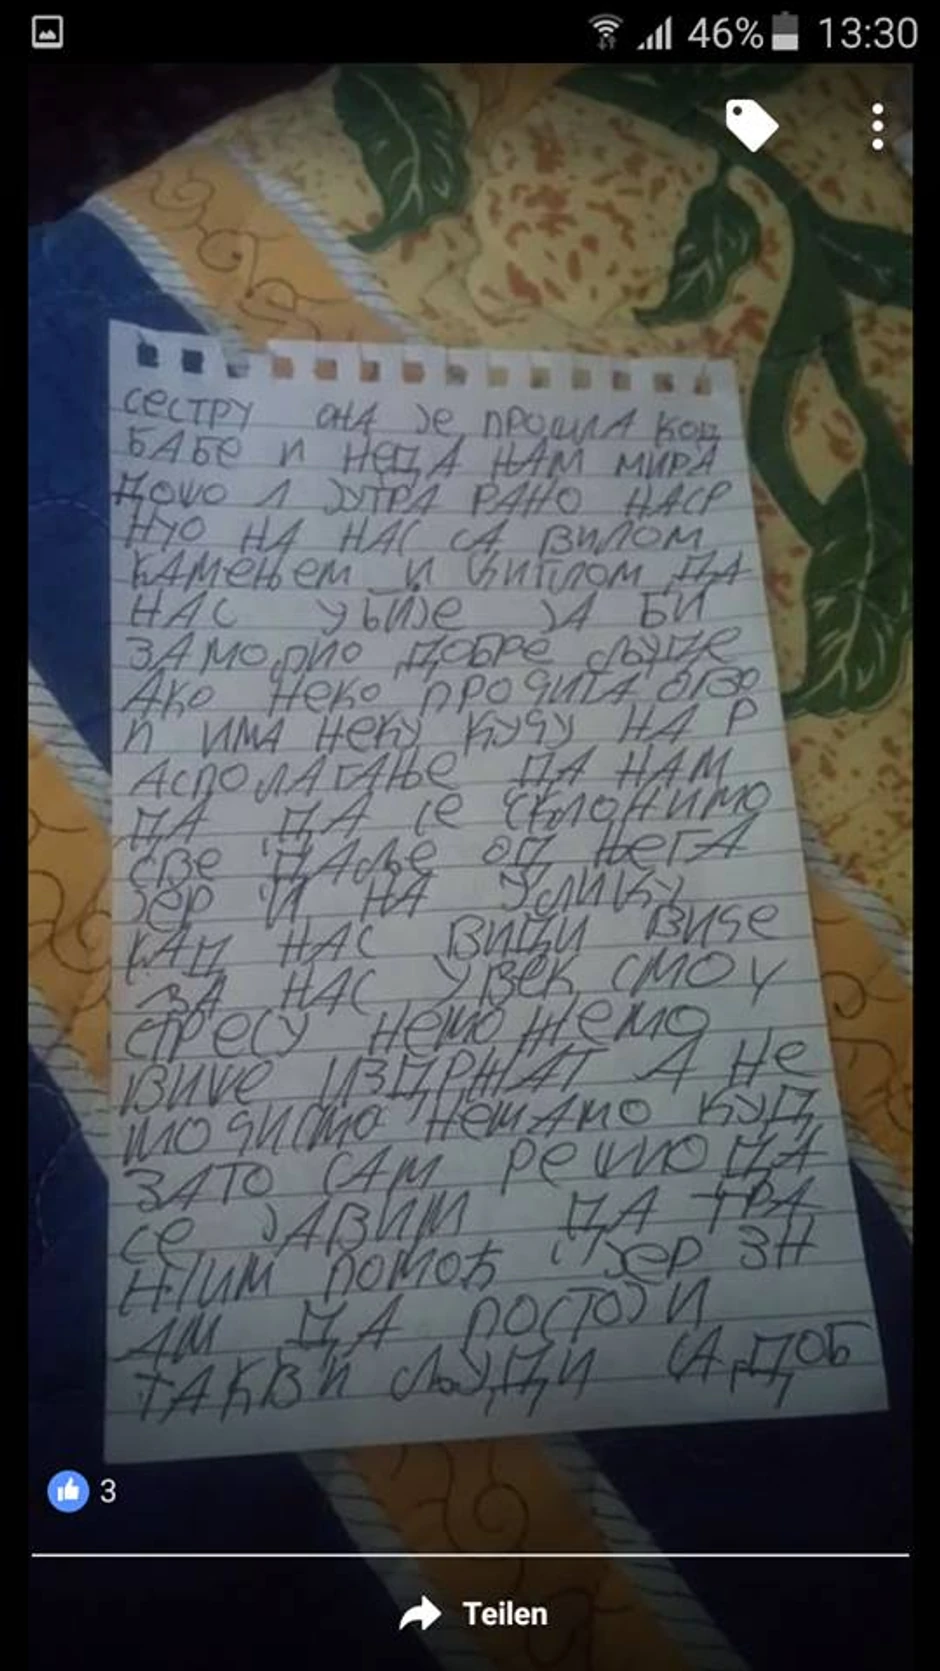 46% 13:30
сестру она је прошла код
бабе и неда нам мира
дошо јутра рано наср
нуо на нас са вилом
камењем и да
нас убије ја би
замолио добре људе
Ако неко прочита ово
и има неку кучу на р
асполагање да нам
да да се склонимо
све даље од њега
јер и на улицу
кад нас види виче
за нас увек смо у
стресу неможемо
више издржат а не
мо чисто немамо куд
зато сам решио да
се јавим да тра
жим помоћ јер зн
ам да постоји
такви људи са доб
3
Teilen